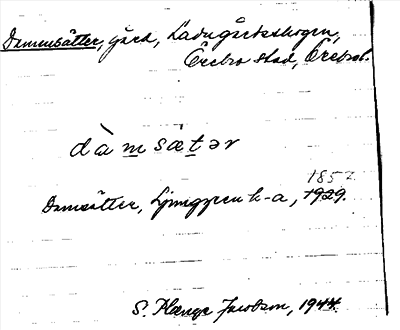 Dammsätter, gård, Ladugårdsskogen,
Örebro stad, Örebrol.
dàmsætər
1852
Damsätter, Ljunggren h-a, 1929.
S. Plænge Jacobson, 1944.